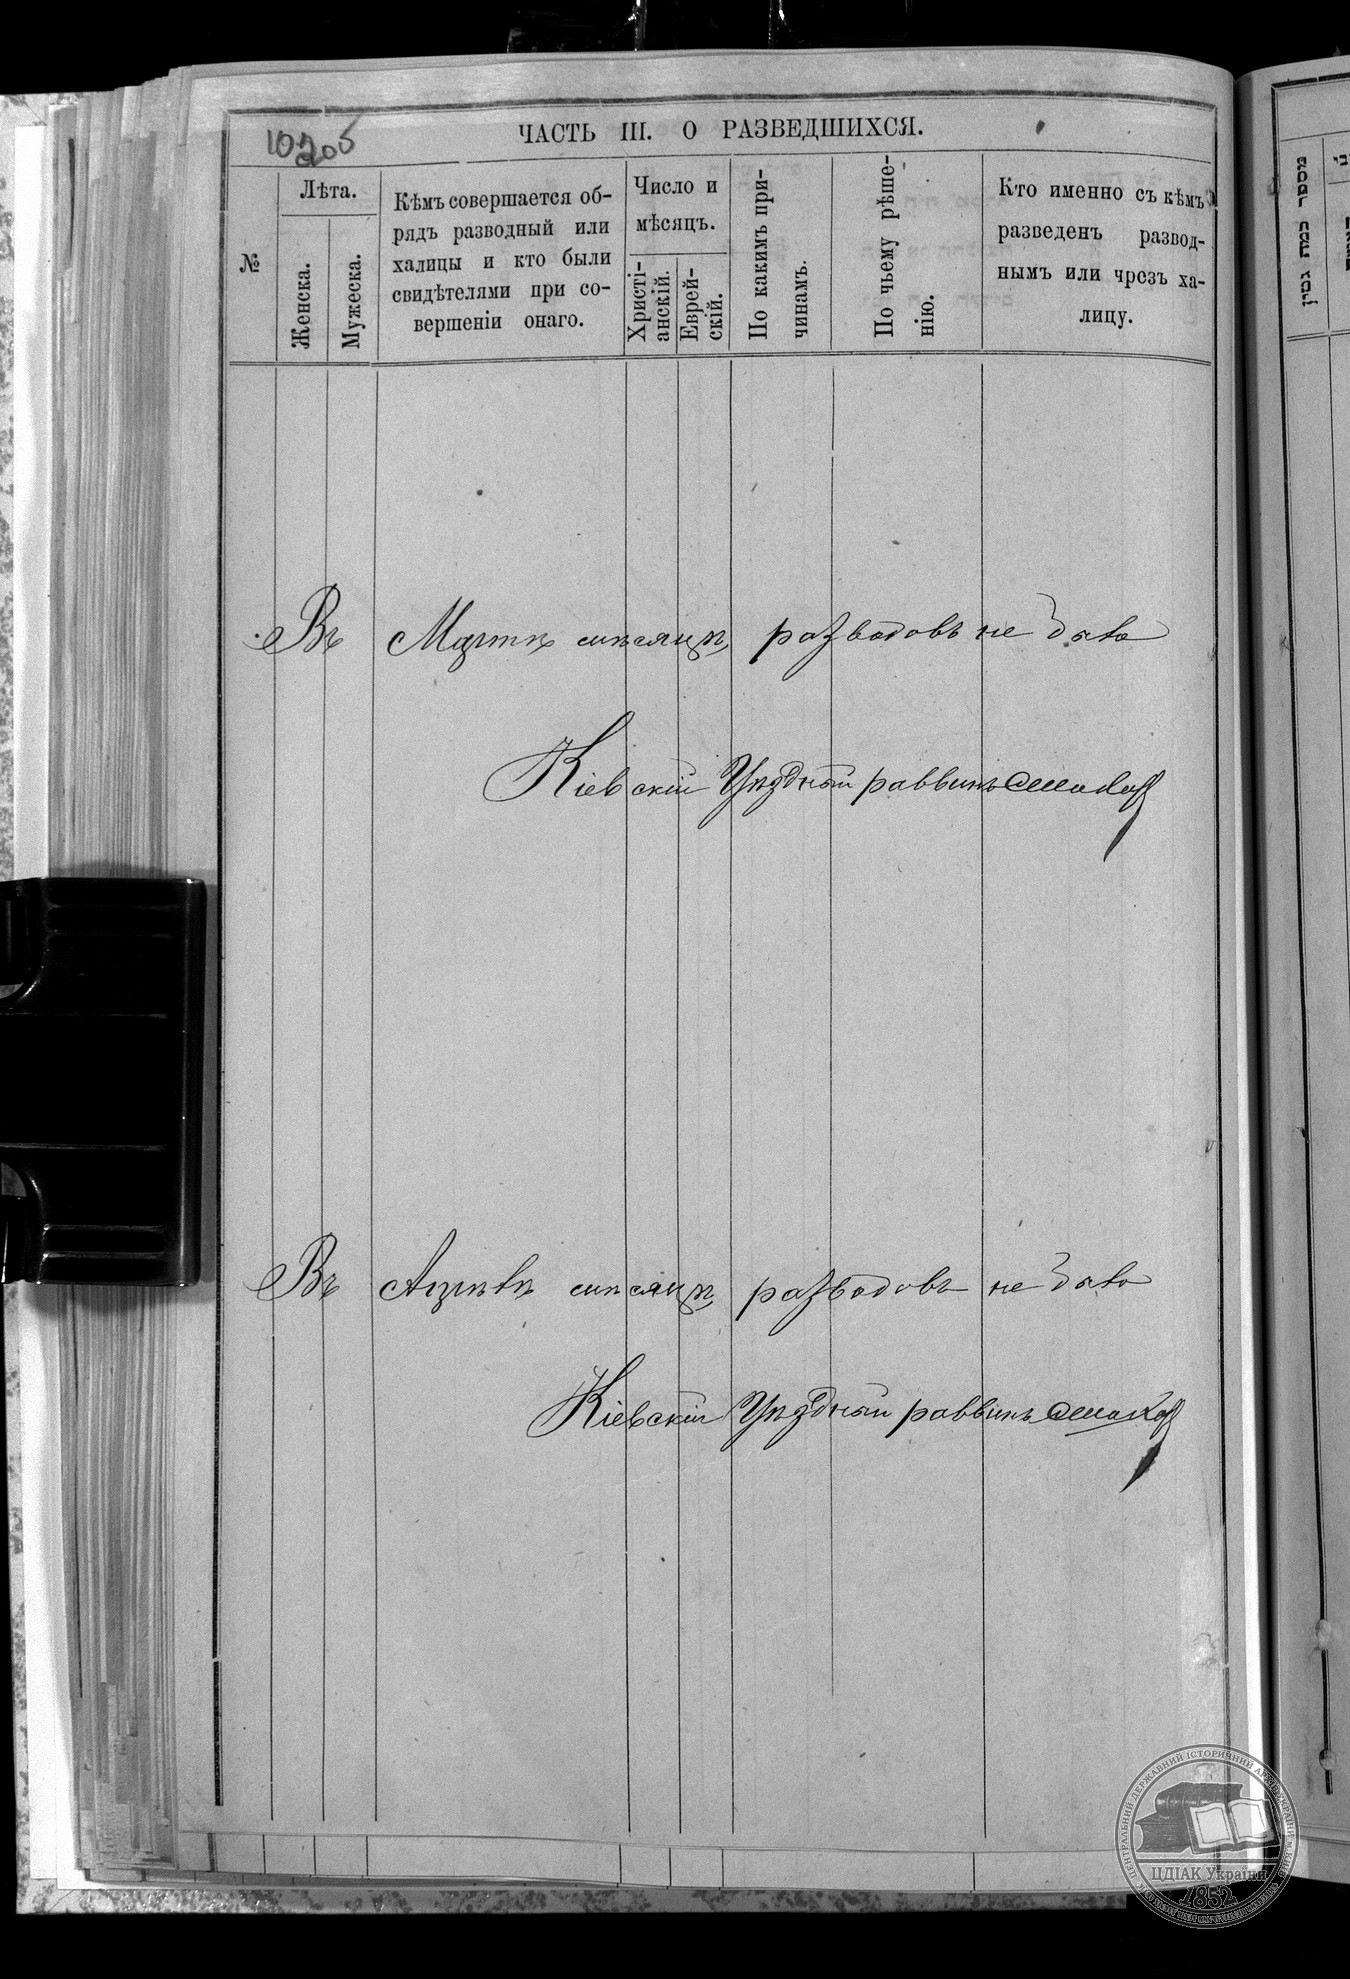 ЧАСТЬ III. О РАЗВЕДШИХСЯ.
№
Лѣта.
Женска.
Мужеска.
Кѣмъ совершается об-
рядъ разводный или
халицы и кто были
свидѣтелями при со-
вершеніи онаго.
Число и
мѣсяцъ.
Христі-
анскій.
Еврей-
скій.
По какимъ при-
чинамъ.
По чьему рѣше-
нію.
Кто именно съ кѣмъ
разведенъ развод-
нымъ или чрезъ ха-
лицу.
Въ Мартѣ мѣсяцѣ разводовъ не было
Кіевскій Уѣздный раввинъ
Въ Апрѣлѣ мѣсяцѣ разводовъ не было
Кіевскій Уѣздный раввинъ
מספר כמה גטין
ЦЕНТРАЛЬНИЙ ДЕРЖАВНИЙ ІСТОРИЧНИЙ АРХІВ УКРАЇНИ М. КИЇВ
ЦДІАК України
1852